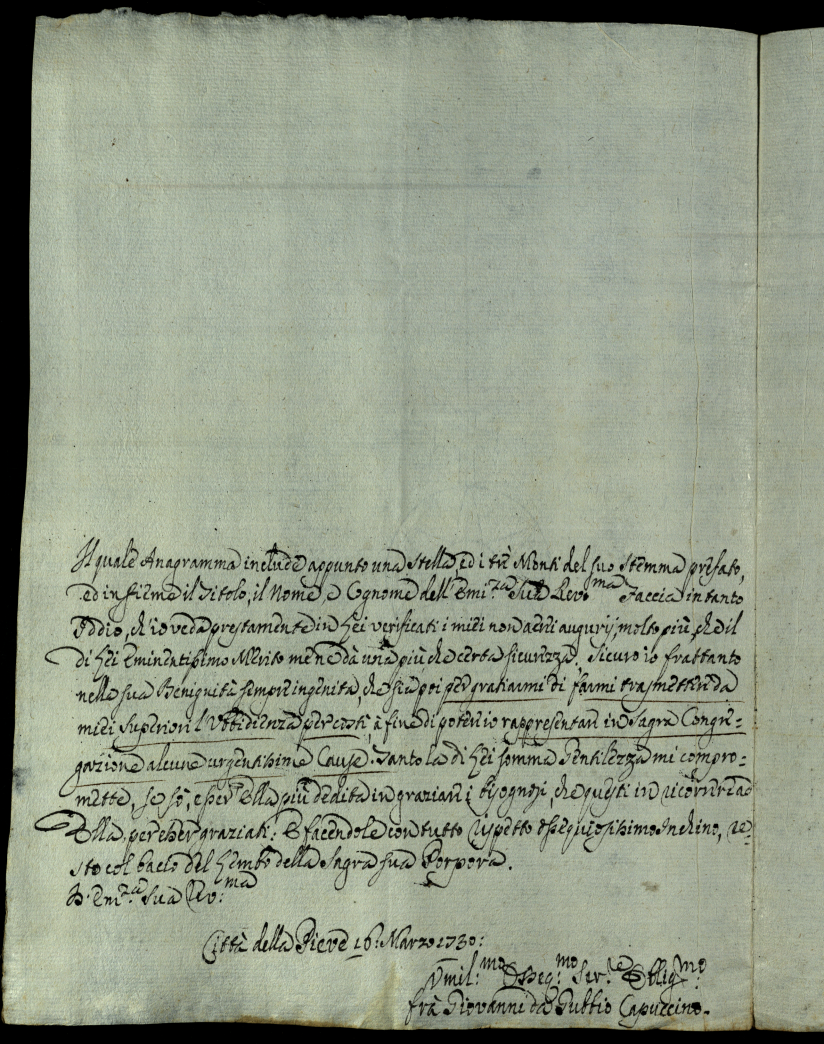 Il quale Anagramma include appunto una Stella, ed i trè Monti del suo Stemma prefato,
ed insieme il Titolo, il Nome, e Cognome dell'Emi:za Sua Revo:ma Faccia intanto
Iddio, ch'io veda prestamente in Lei verificati i miei non augurij, molto più, che il
di Lei Eminentissimo Merito me ne dà una più che certa sicurezza. Sicuro io frattanto
nella sua Benignità sempre ingenita, che sia poi per gratiarmi di farmi trasmetter da
miei Superiori l'Ubbidienza per costì, à fine di poter io rappresentar in Sagra Congre=
gazione alcune urgentissime Cause. Tanto la di Lei somma Gentilezza mi compro=
mette, se sò, esser Ella più dedita in graziar i bisognosi, che questi in ricorrer ad
Ella, per esser graziati: E facendole con tutto rispetto osequiosissimo Inchino, re=
sto col bacio del Lembo della Sagra sua Porpora.
D. Em:za Sua Rev:ma
Città della Pieve 16: Marzo 1730:
Umil:mo Osseq:mo Ser:re Oblig:mo
frà Giovanni da Gubbio Capuccino.